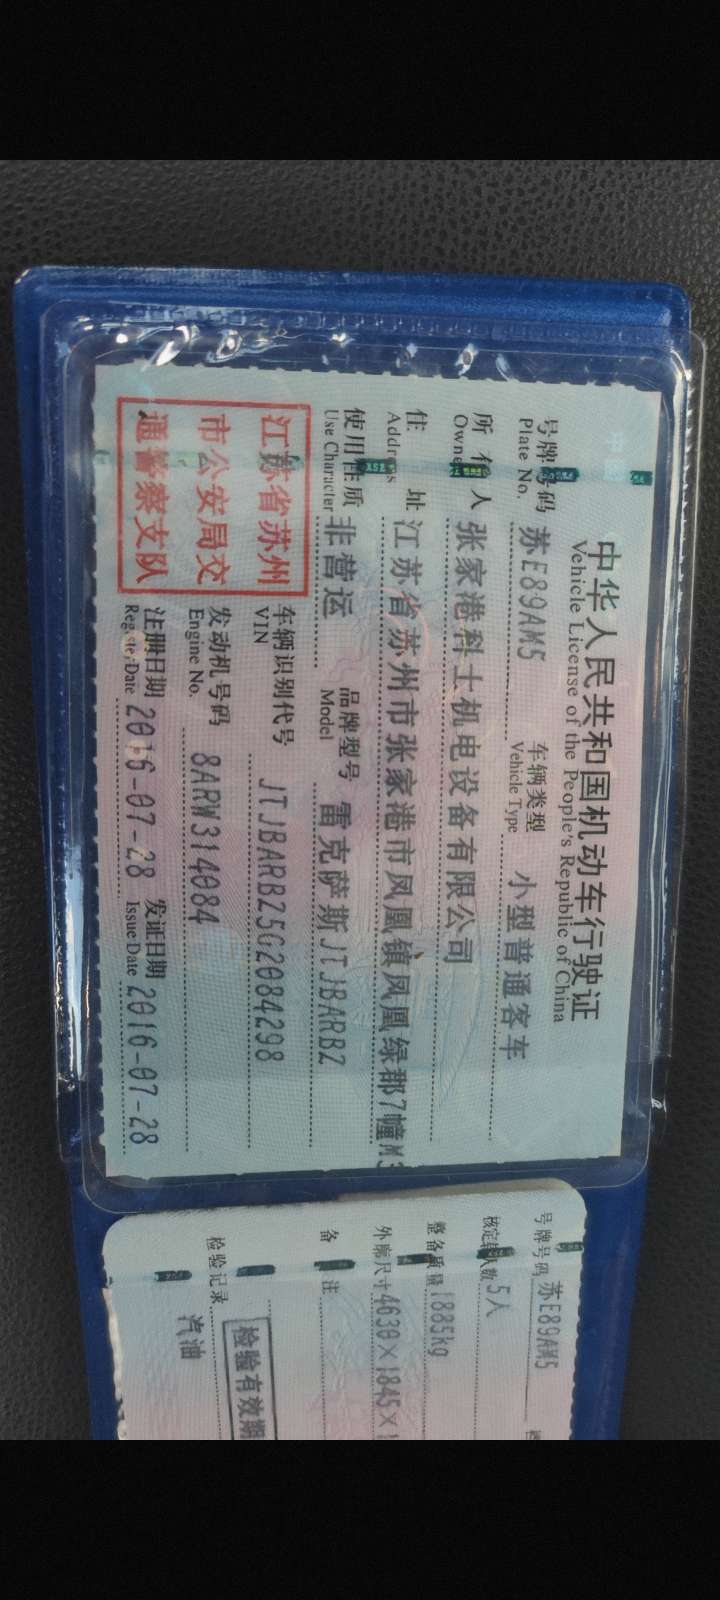 中华人民共和国机动车行驶证
Vehicle License of the People's Republic of China
号牌号码 苏E89AM5 车辆类型 小型普通客车
Plate No. Vehicle Type
所有人 张家港科士机电设备有限公司
Owner
住 址 江苏省苏州市张家港市凤凰镇凤凰绿郡7幢M3
Address
使用性质 非营运 品牌型号 雷克萨斯JTJBARBZ
Use Character Model
江苏省苏州
市公安局交
通警察支队
车辆识别代号 JTJBARBZ5G2084298
VIN
发动机号码 8ARW314084
Engine No.
注册日期 2016-07-28 发证日期 2016-07-28
Register Date Issue Date
号牌号码 苏E89AM5
核定载人数 5人
整备质量 1885kg
外廓尺寸 4630×1845×1
备 注
检验有效期
检验记录
汽油